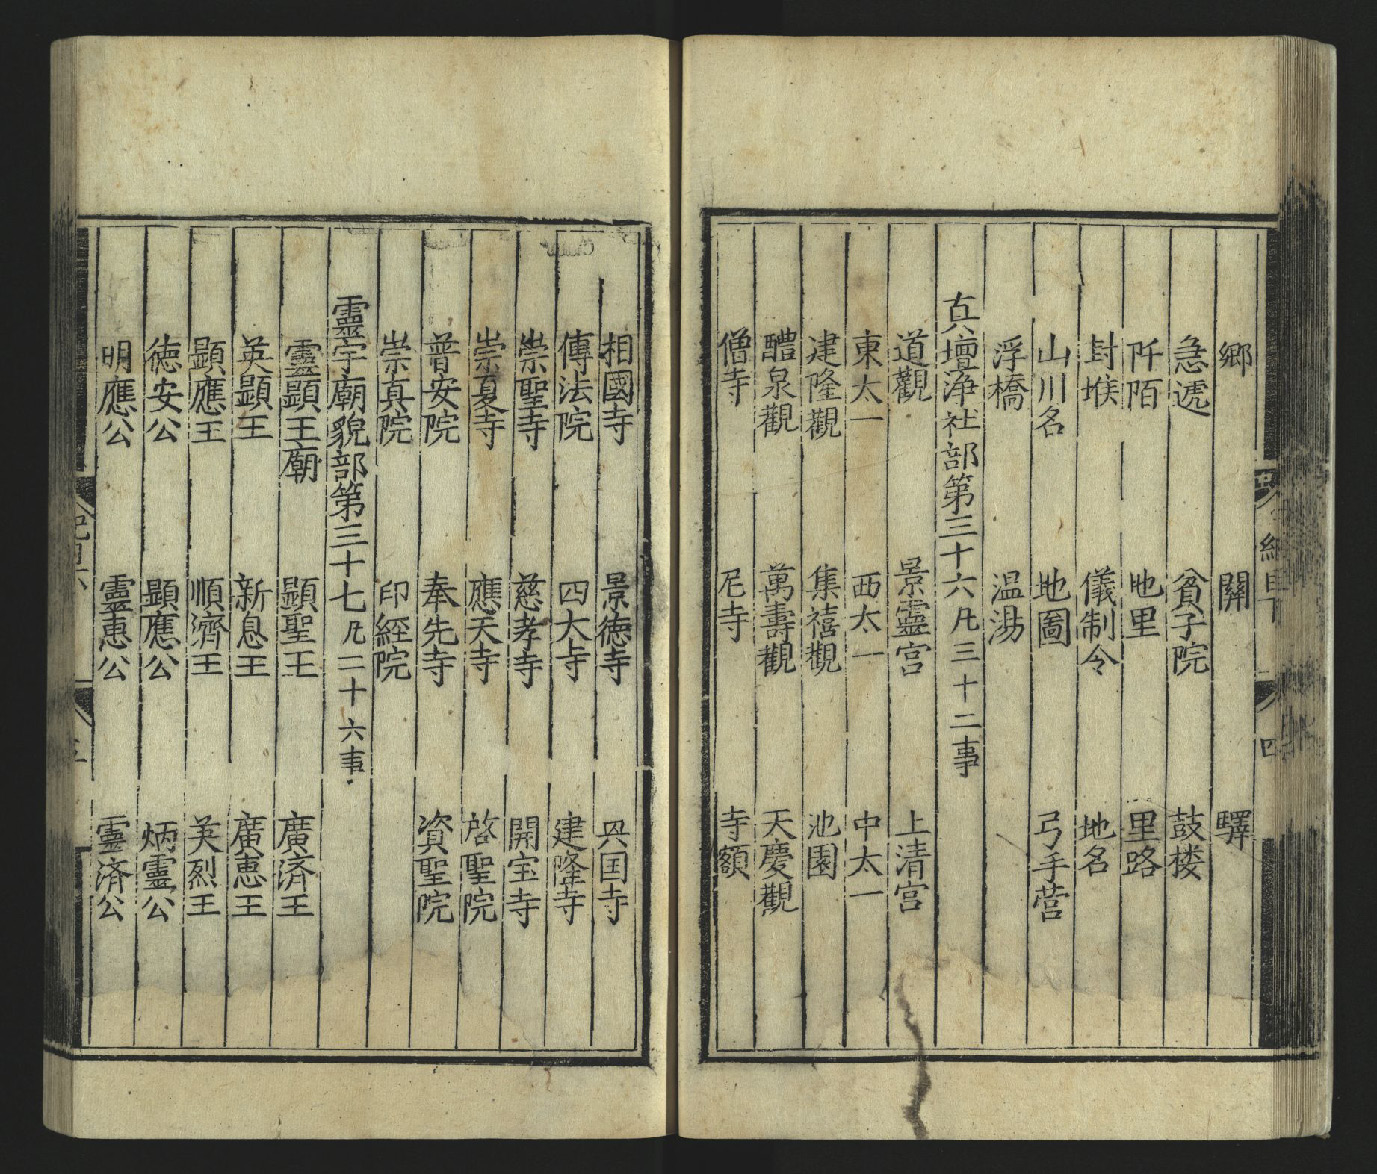 鄉 關 驛
急遞 貧子院 鼓楼
阡陌 地里 里路
封堠 儀制令 地名
山川名 地圖 弓手营
浮橋 温湯
真壇淨社部第三十六凡三十二事
道觀 景靈宫 上清宫
東太一 西太一 中太一
建隆觀 集禧觀 池園
醴泉觀 萬壽觀 天慶觀
僧寺 尼寺 寺額
相國寺 景德寺 兴国寺
傳法院 四大寺 建隆寺
崇聖寺 慈孝寺 開宝寺
崇夏寺 應天寺 啓聖院
普安院 奉先寺 資聖院
崇真院 印經院
靈宇廟貌部第三十七凡二十六事
靈顕王廟 顕聖王 廣済王
英顕王 新息王 廣恵王
顕應王 順濟王 英烈王
徳安公 顕應公 炳靈公
明應公 靈恵公 靈済公